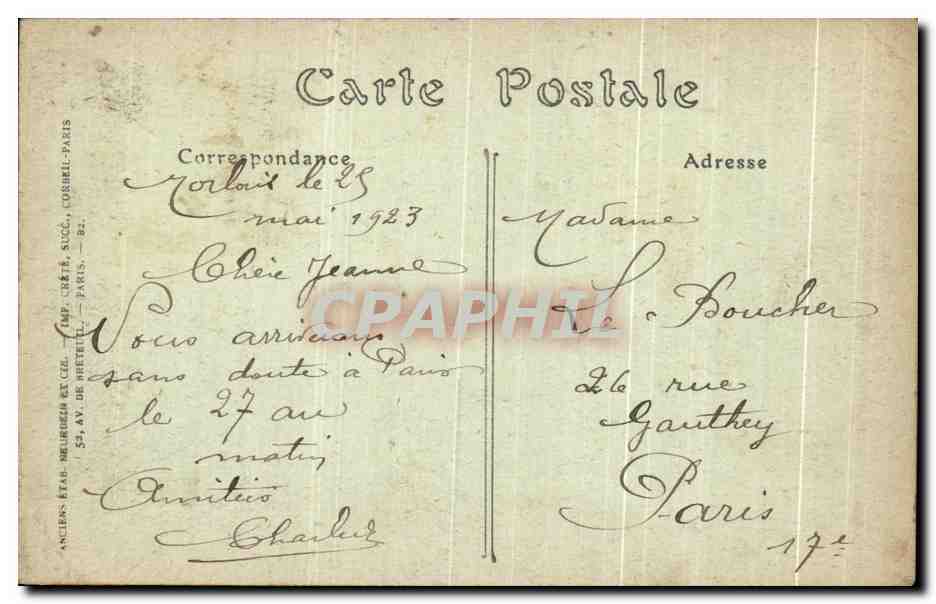 Carte Postale
Correspondance
Morlaix le 25
mai 1923
Chère Jeanne
Nous arriverons
sans doute à Paris
le 27 au
matin
Amitiés
Adresse
Madame
Le Boucher
26 rue
Gauthey
Paris
17e
ANCIENS ÉTAB. NEURDEIN ET CIE. — IMP. CRÉTÉ, SUCC., CORBEIL-PARIS
52, AV. DE BRETEUIL. — PARIS. — B2.
CPAPHIL